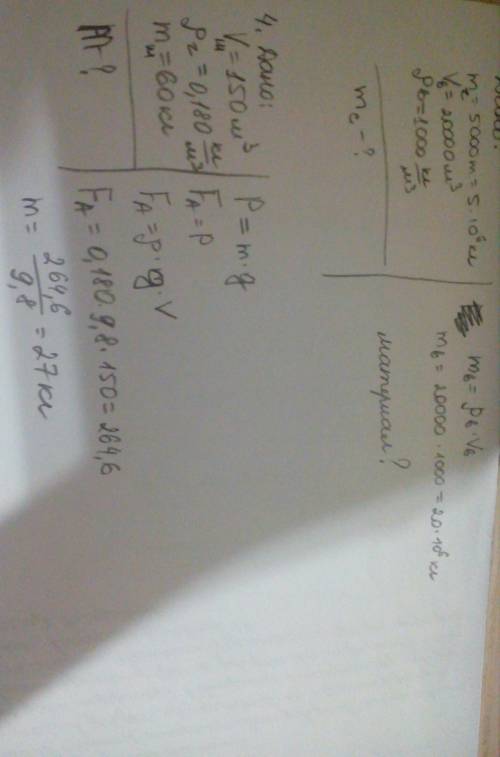 m_c = 5000 т = 5 · 10⁶ кг
V_в = 20000 м³
ρ_в = 1000 кг/м³
m_c - ?
m_в = ρ_в · V_в
m_в = 20000 · 1000 = 20 · 10⁶ кг
материал?
4. Дано:
V_ш = 150 м³
ρ_г = 0,180 кг/м³
m_ш = 60 кг
m - ?
P = m · g
F_A = P
F_A = ρ · g · V
F_A = 0,180 · 9,8 · 150 = 264,6
m = 264,6 / 9,8 = 27 кг